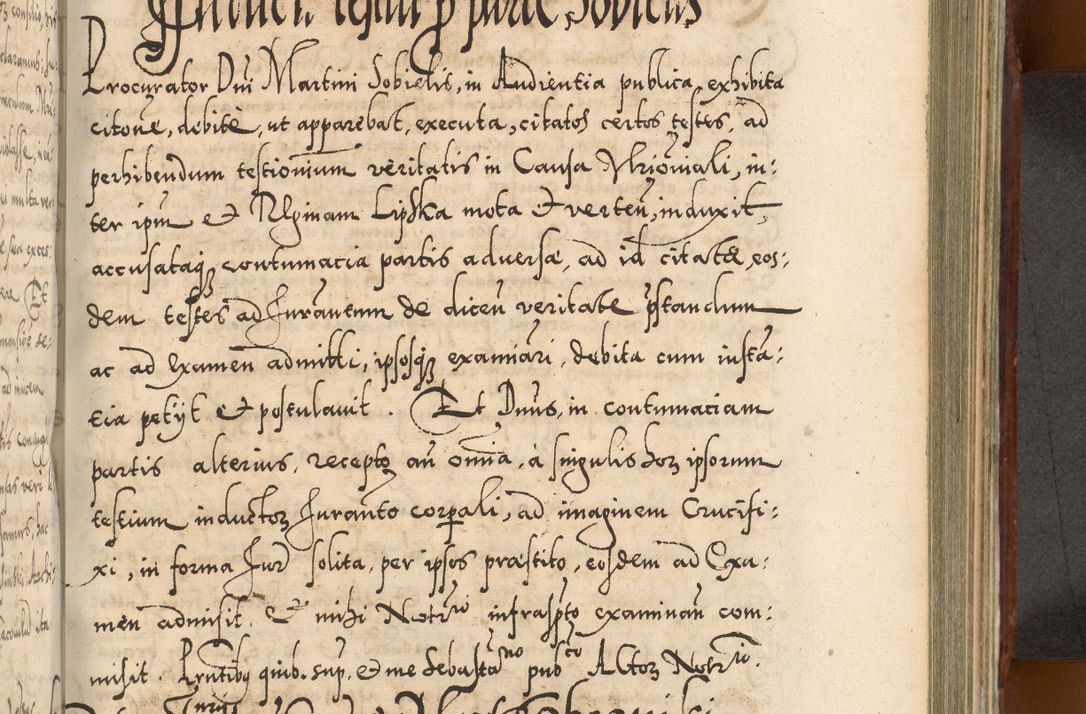 Inducti. testiũ p̱ parte Sobielis
Procurator Dñi Martini Sobielis, in Audientia publica, exhibita
citoñe, debitè, ut apparebat, executa, citatos certos testes, ad
perhibendum testionium veritatis in Causa Mrioniali, in:
ter ipm̃ et Reginam Lipska mota et verteñ, induxit,
accusataq3 contumacia partis adversæ, ad id citatæ, eos:
dem testes ad Iurameñtum de diceñ veritate p̃standum
ac ad Examen admitti, ipsosq3 examiãri, debita cum instã:
tia petijt et postulavit. Et Dnus, in contumaciam
partis alterius, recepto añ omia, à singulis hoȝ ipsorum
testium inductoȝ Iuramto corporali, ad imaginem Crucifi:
xi, in forma Iur̃ solita, per ipsos præstito, eosdem ad Exa:
men admisit, et mihi Notrio infrasp̃to examinañ com:
misit. Prñtibq quib. sup. et me Sebastano pubco Actoȝ Notrio.